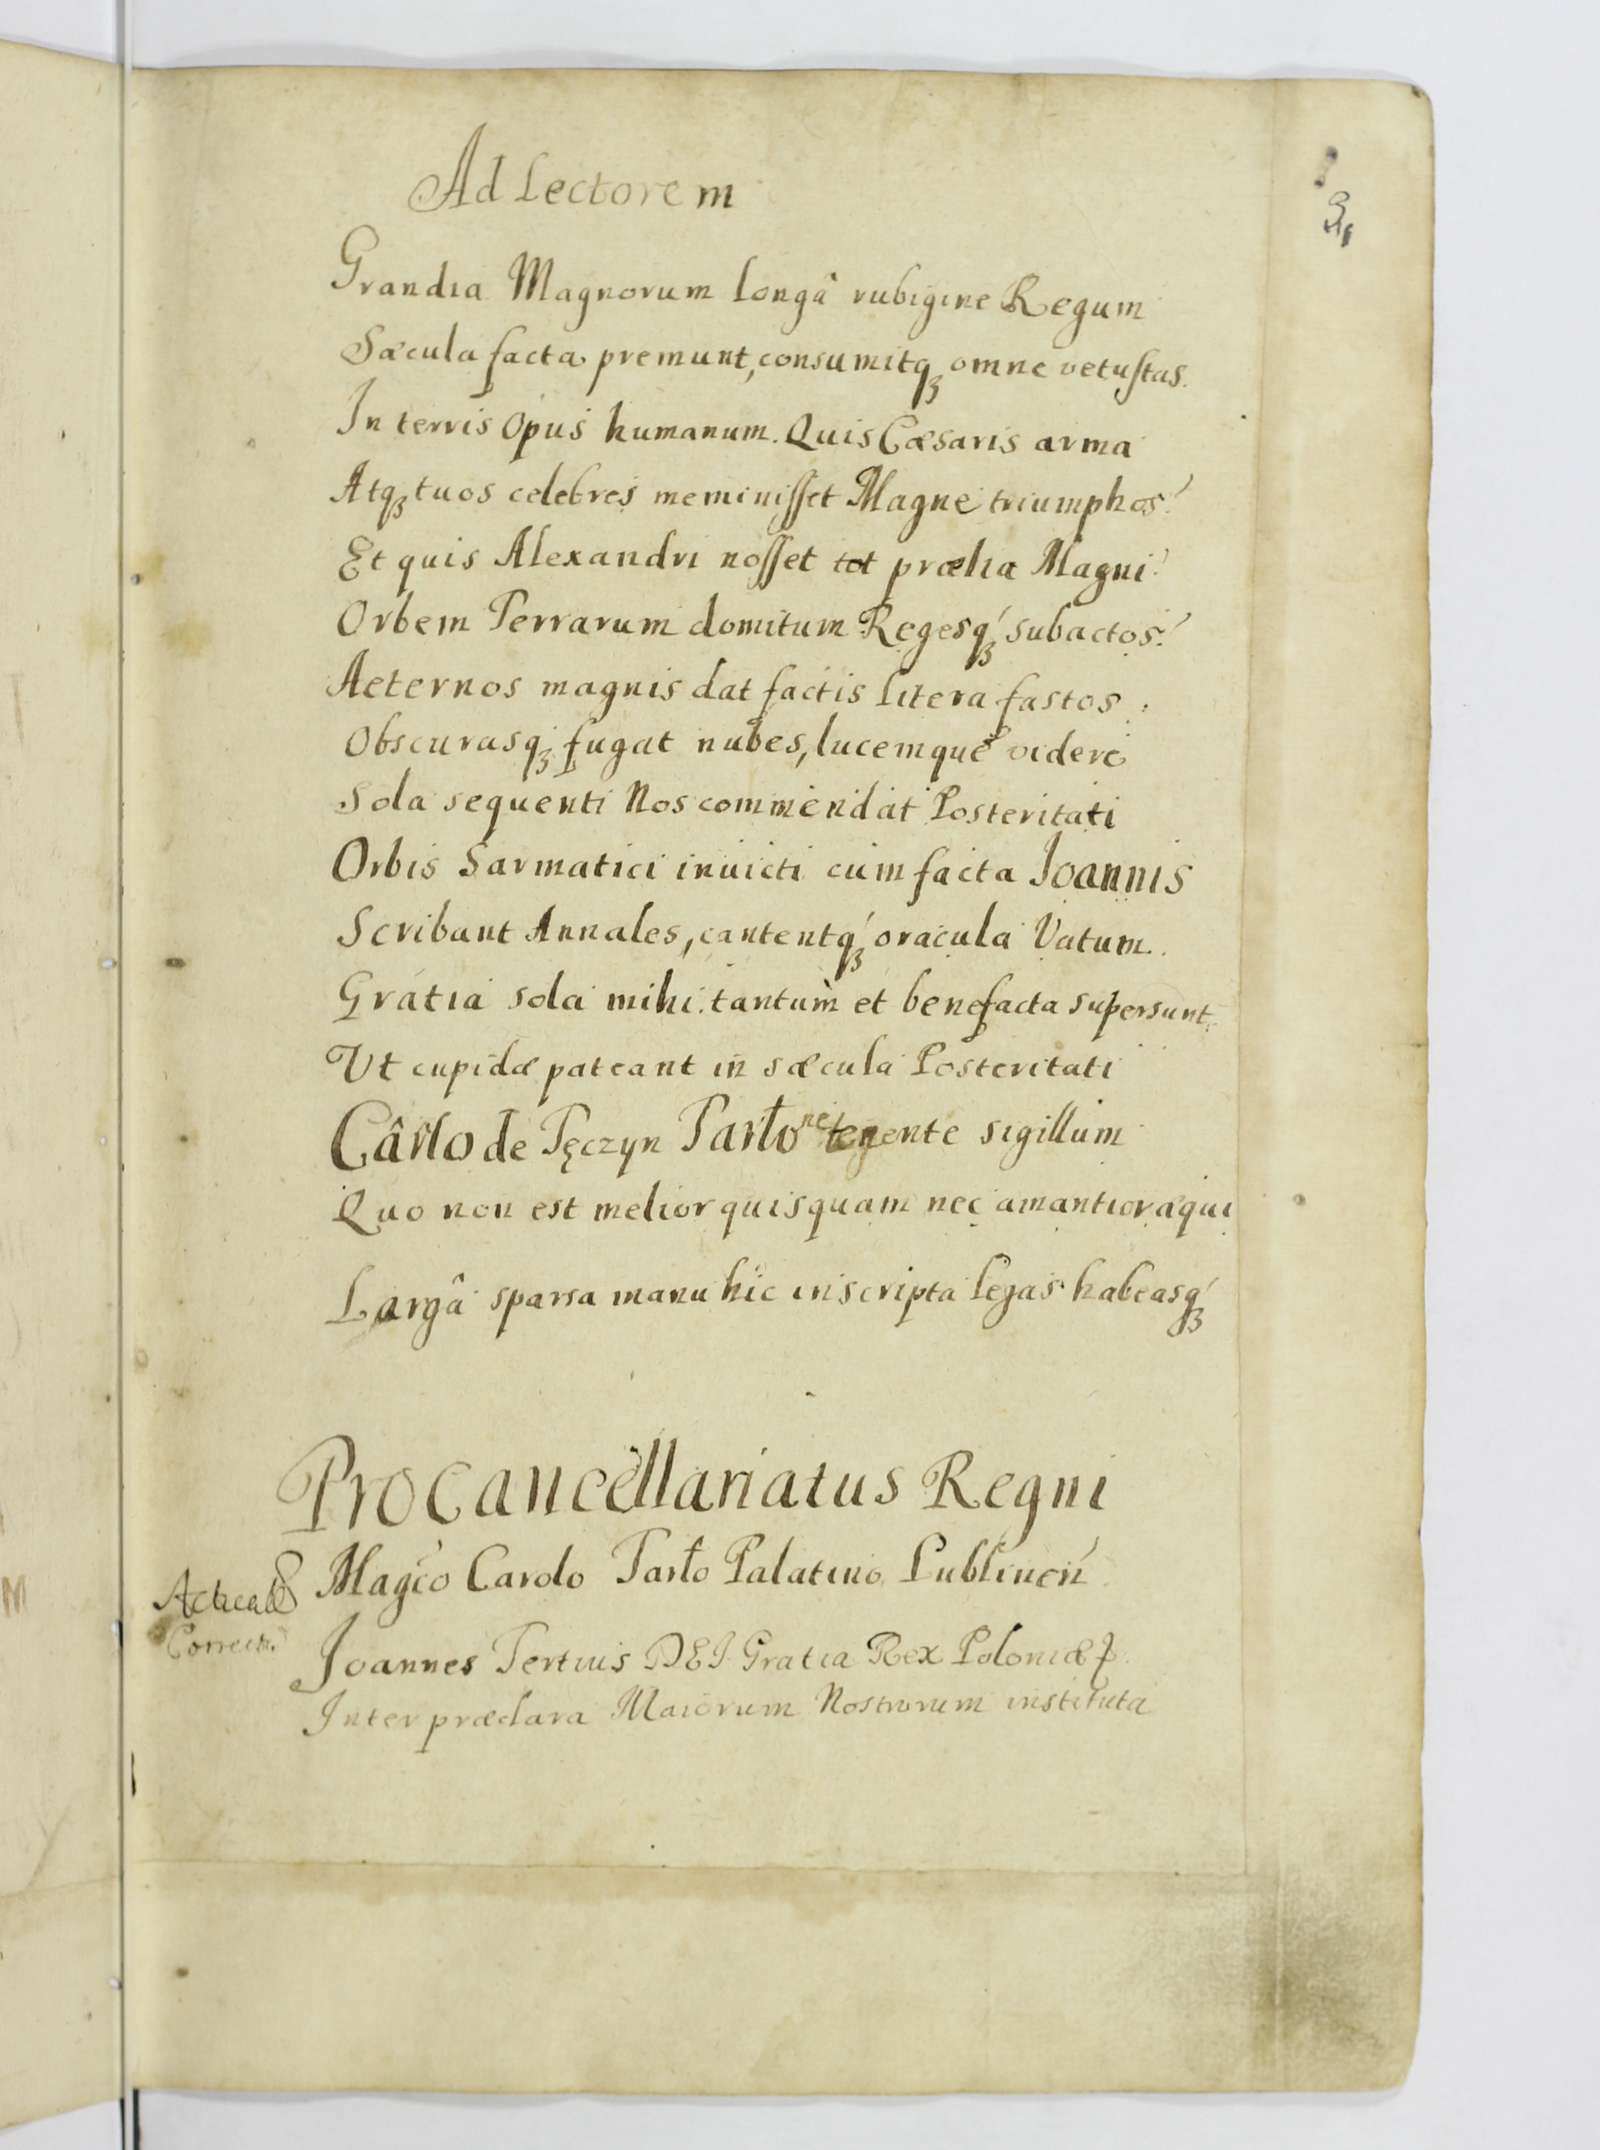 Ad Lectorem
Grandia Magnorum longâ rubigine Regum
Sæcula facta premunt, consumitqꝫ omne vetuſtas.
In terris Opus humanum. Quis Cæsaris arma
Atqꝫ tuos celebres meminiſſet Magne triumphos?
Et quis Alexandri noſſet tot prælia Magni?
Orbem Terrarum domitum Regesqꝫ subactos?
Aeternos magnis dat factis litera fastos.
Obscurasqꝫ fugat nubes, lucemque videre
Sola sequenti Nos commendat Posteritati
Orbis Sarmatici inuicti cum facta Joannis
Scribant Annales, cantentqꝫ oracula Vatum.
Gratia sola mihi tantum et benefacta supersunt.
Vt cupidæ pateant in sæcula Posteritati
Cârlo de Tęczyn Tarło tegente sigillum
Quo non est melior quisquam nec amantior æqui
Largâ sparsa manu hic inscripta legas habeasqꝫ
Procancellariatus Regni
Magco Carolo Tarło Palatino Lublinen
Joannes Tertius DEI Gratia Rex Poloniæ
Inter præclara Maiorum Nostrorum instituta